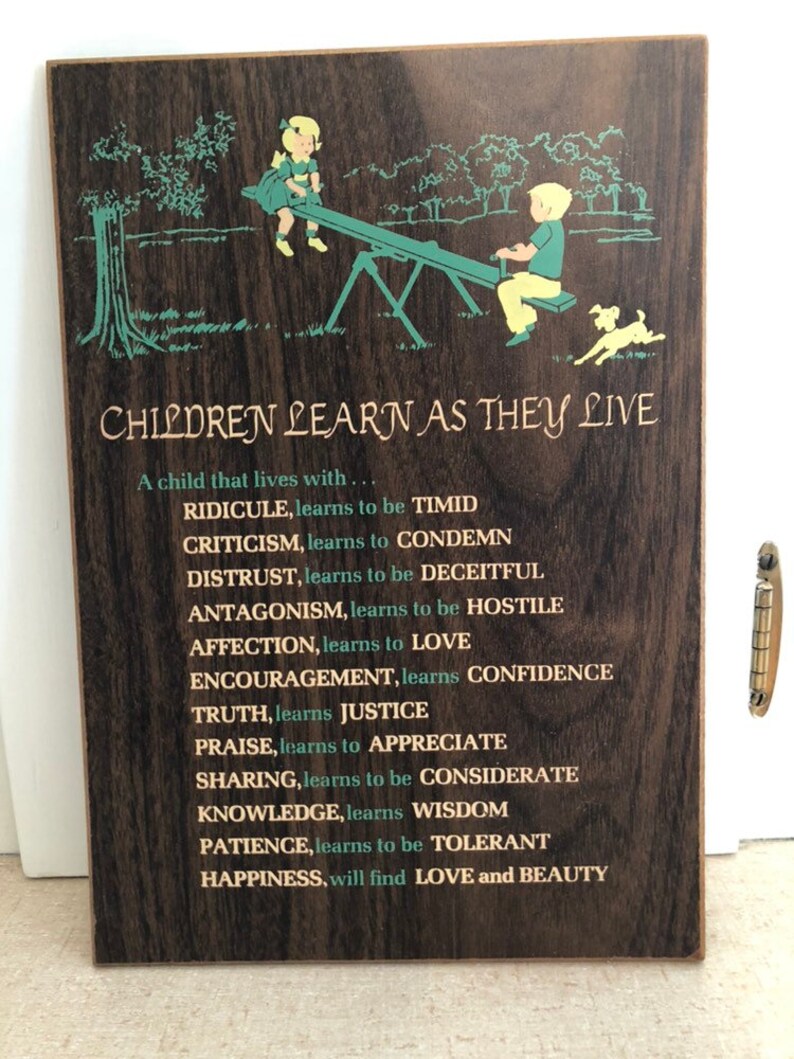 CHILDREN LEARN AS THEY LIVE
A child that lives with . . .
RIDICULE, learns to be TIMID
CRITICISM, learns to CONDEMN
DISTRUST, learns to be DECEITFUL
ANTAGONISM, learns to be HOSTILE
AFFECTION, learns to LOVE
ENCOURAGEMENT, learns CONFIDENCE
TRUTH, learns JUSTICE
PRAISE, learns to APPRECIATE
SHARING, learns to be CONSIDERATE
KNOWLEDGE, learns WISDOM
PATIENCE, learns to be TOLERANT
HAPPINESS, will find LOVE and BEAUTY